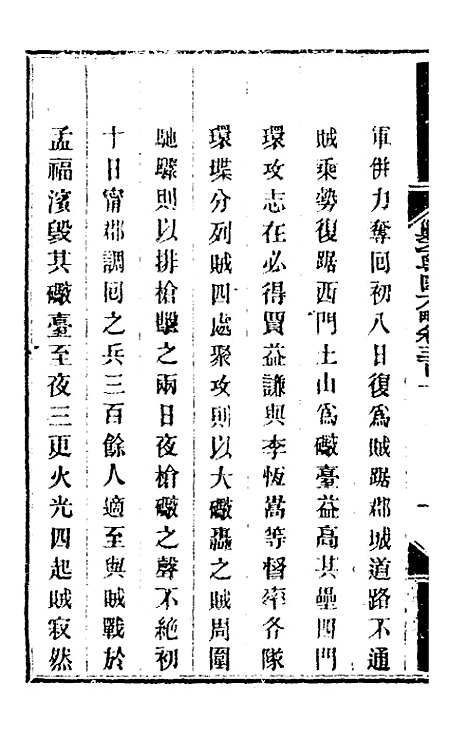 軍併力奪囘初八日復爲賊踞郡城道路不通
賊乘勢復踞西門土山爲礮臺益高其壘四門
環攻志在必得賈益謙與李恆嵩等督率各隊
環堞分列賊四處聚攻則以大礮轟之賊周圍
馳驟則以排槍擊之兩日夜槍礮之聲不絕初
十日甯郡調囘之兵三百餘人適至與賊戰於
孟福濱毀其礮臺至夜三更火光四起賊寂然